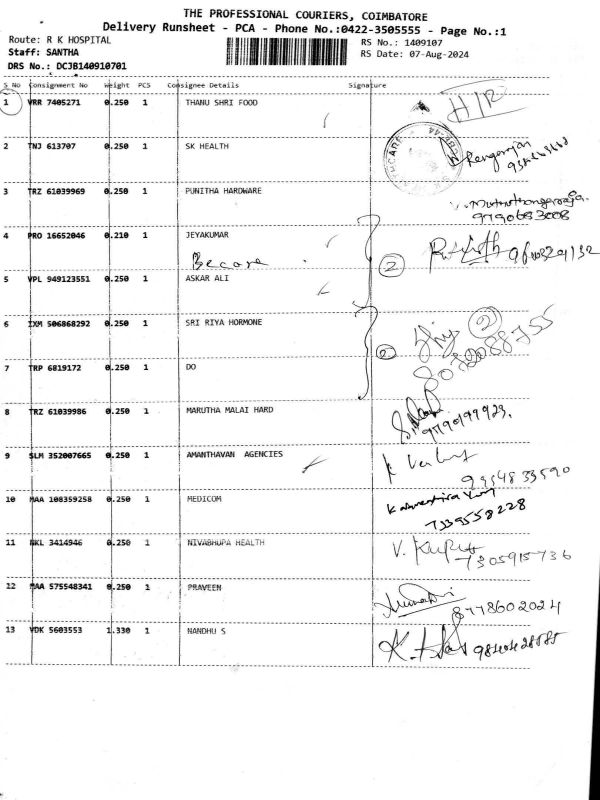 THE PROFESSIONAL COURIERS, COIMBATORE
Delivery Runsheet - PCA - Phone No.:0422-3505555 - Page No.:1
Route: R K HOSPITAL
RS No.: 1409107
Staff: SANTHA
RS Date: 07-Aug-2024
DRS No.: DCJB140910701
S No Consignment No Weight PCS Consignee Details Signature
1 VRR 7405271 0.250 1 THANU SHRI FOOD
2 TNJ 613707 0.250 1 SK HEALTH Rengarajan
3 TRZ 61039969 0.250 1 PUNITHA HARDWARE
9790683008
4 PRO 16652046 0.210 1 JEYAKUMAR
2
5 VPL 949123551 0.250 1 ASKAR ALI
6 IXM 506868292 0.250 1 SRI RIYA HORMONE 2
2 8072088755
7 TRP 6819172 0.250 1 DO
8 TRZ 61039986 0.250 1 MARUTHA MALAI HARD
9790199923.
9 SLM 352007665 0.250 1 AMANTHAVAN AGENCIES
9954833590
10 MAA 108359258 0.250 1 MEDICOM
7339558228
11 NKL 3414946 0.250 1 NIVABHUPA HEALTH
7305915736
12 MAA 575548341 0.250 1 PRAVEEN
8778602024
13 VDK 5603553 1.330 1 NANDHU S